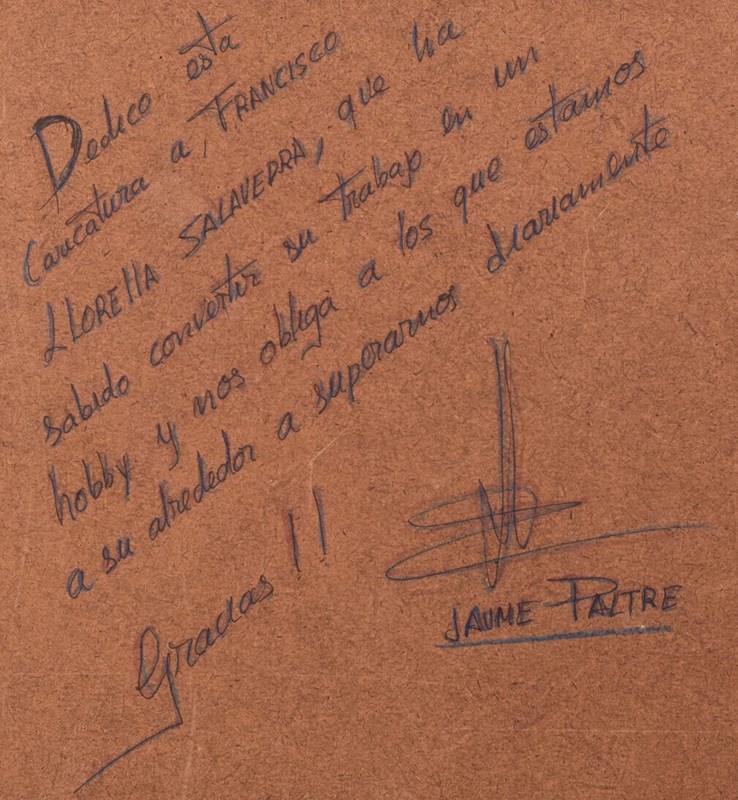 Dedico esta
Caricatura a, FRANCISCO
LLORELLA SALAVEDRA, que ha
sabido convertir su trabajo en un
hobby y nos obliga a los que estamos
a su alrededor a superarnos diariamente
Gracias !!
JAUME PALTRE